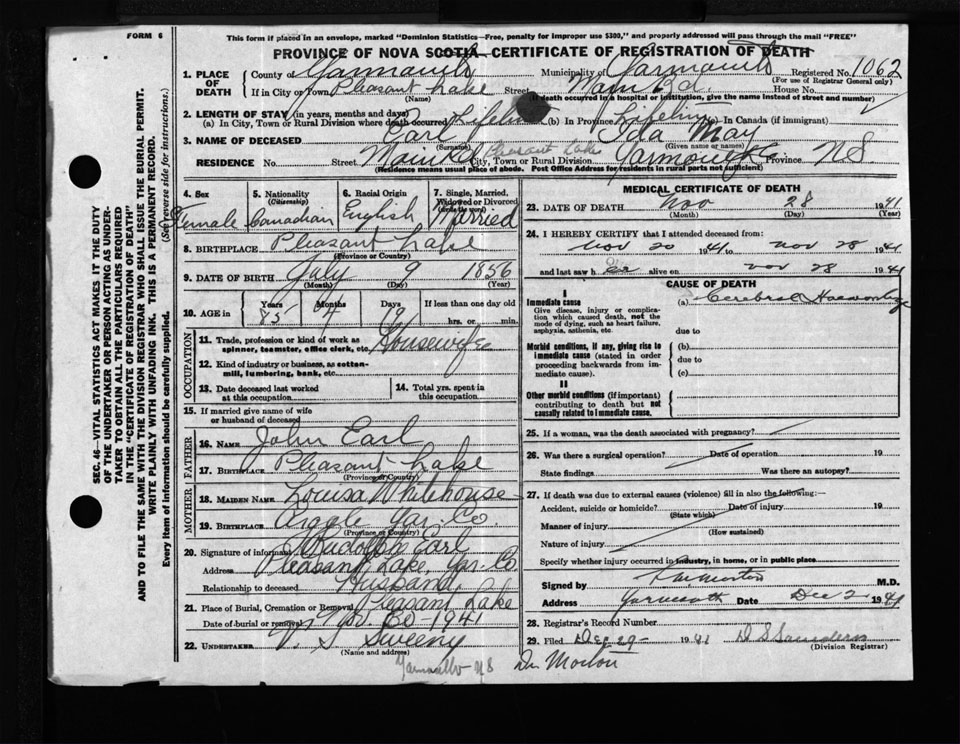 FORM 6
This form if placed in an envelope, marked "Dominion Statistics—Free, penalty for improper use $300," and properly addressed will pass through the mail "FREE"
PROVINCE OF NOVA SCOTIA—CERTIFICATE OF REGISTRATION OF DEATH
1. PLACE OF DEATH County of Yarmouth Municipality of Yarmouth Registered No. 1062
(For use of Registrar General only)
If in City or Town Pleasant Lake Street Main Rd. House No.
(Name) (If death occurred in a hospital or institution, give the name instead of street and number)
2. LENGTH OF STAY (in years, months and days)
(a) In City, Town or Rural Division where death occurred Lifetime (b) In Province Lifetime (c) In Canada (if immigrant)
3. NAME OF DECEASED Earl Ida May
(Surname) (Given name or names)
RESIDENCE No. Street Main Rd City, Town or Rural Division Pleasant Lake Yarmouth Province NS
(Residence means usual place of abode. Post Office Address for residents in rural parts not sufficient)
SEC. 46—VITAL STATISTICS ACT MAKES IT THE DUTY
OF THE UNDERTAKER OR PERSON ACTING AS UNDER-
TAKER TO OBTAIN ALL THE PARTICULARS REQUIRED
IN THE "CERTIFICATE OF REGISTRATION OF DEATH"
AND TO FILE THE SAME WITH THE DIVISION REGISTRAR WHO SHALL ISSUE THE BURIAL PERMIT.
WRITE PLAINLY WITH UNFADING INK. THIS IS A PERMANENT RECORD.
Every item of information should be carefully supplied. (See reverse side for instructions.)
4. Sex Female
5. Nationality (Citizenship) Canadian
6. Racial Origin English
7. Single, Married, Widowed or Divorced Married
8. BIRTHPLACE Pleasant Lake
(Province or Country)
9. DATE OF BIRTH July 9 1856
(Month) (Day) (Year)
10. AGE in Years 85 Months 4 Days 19 If less than one day old hrs. or min.
OCCUPATION
11. Trade, profession or kind of work as spinner, teamster, office clerk, etc. Housewife
12. Kind of industry or business, as cotton-mill, lumbering, bank, etc.
13. Date deceased last worked at this occupation
14. Total yrs. spent in this occupation
15. If married give name of wife or husband of deceased
FATHER
16. NAME John Earl
17. BIRTHPLACE Pleasant Lake
(Province or Country)
MOTHER
18. MAIDEN NAME Louisa Whitehouse
19. BIRTHPLACE Argyle Yar. Co.
(Province or Country)
20. Signature of informant Rudolph Earl
Address Pleasant Lake Yar. Co.
Relationship to deceased Husband
21. Place of Burial, Cremation or Removal Pleasant Lake
Date of burial or removal Nov. 30-1941
22. UNDERTAKER V. S Sweeny
(Name and address)
Yarmouth N S
MEDICAL CERTIFICATE OF DEATH
23. DATE OF DEATH Nov 28 1941
(Month) (Day) (Year)
24. I HEREBY CERTIFY that I attended deceased from:
Nov 20 1941 to Nov 28 1941
and last saw her alive on Nov 28 1941
CAUSE OF DEATH
I
Immediate cause (a) Cerebral Haemorrhage
Give disease, injury or complication which caused death, not the mode of dying, such as heart failure, asphyxia, asthenia, etc.
due to
Morbid conditions, if any, giving rise to immediate cause (stated in order proceeding backwards from immediate cause). (b)
due to
(c)
II
Other morbid conditions (if important) contributing to death but not causally related to immediate cause.
25. If a woman, was the death associated with pregnancy?
26. Was there a surgical operation? Date of operation 19
State findings Was there an autopsy?
27. If death was due to external causes (violence) fill in also the following:
Accident, suicide or homicide? Date of injury 19
(State which)
Manner of injury
(How sustained)
Nature of injury
Specify whether injury occurred in industry, in home, or in public place
Signed by M.D.
Address Yarmouth Date Dec 2 1941
28. Registrar's Record Number
29. Filed Dec 29- 1941 D S Saunders
(Division Registrar)
Dr Morton